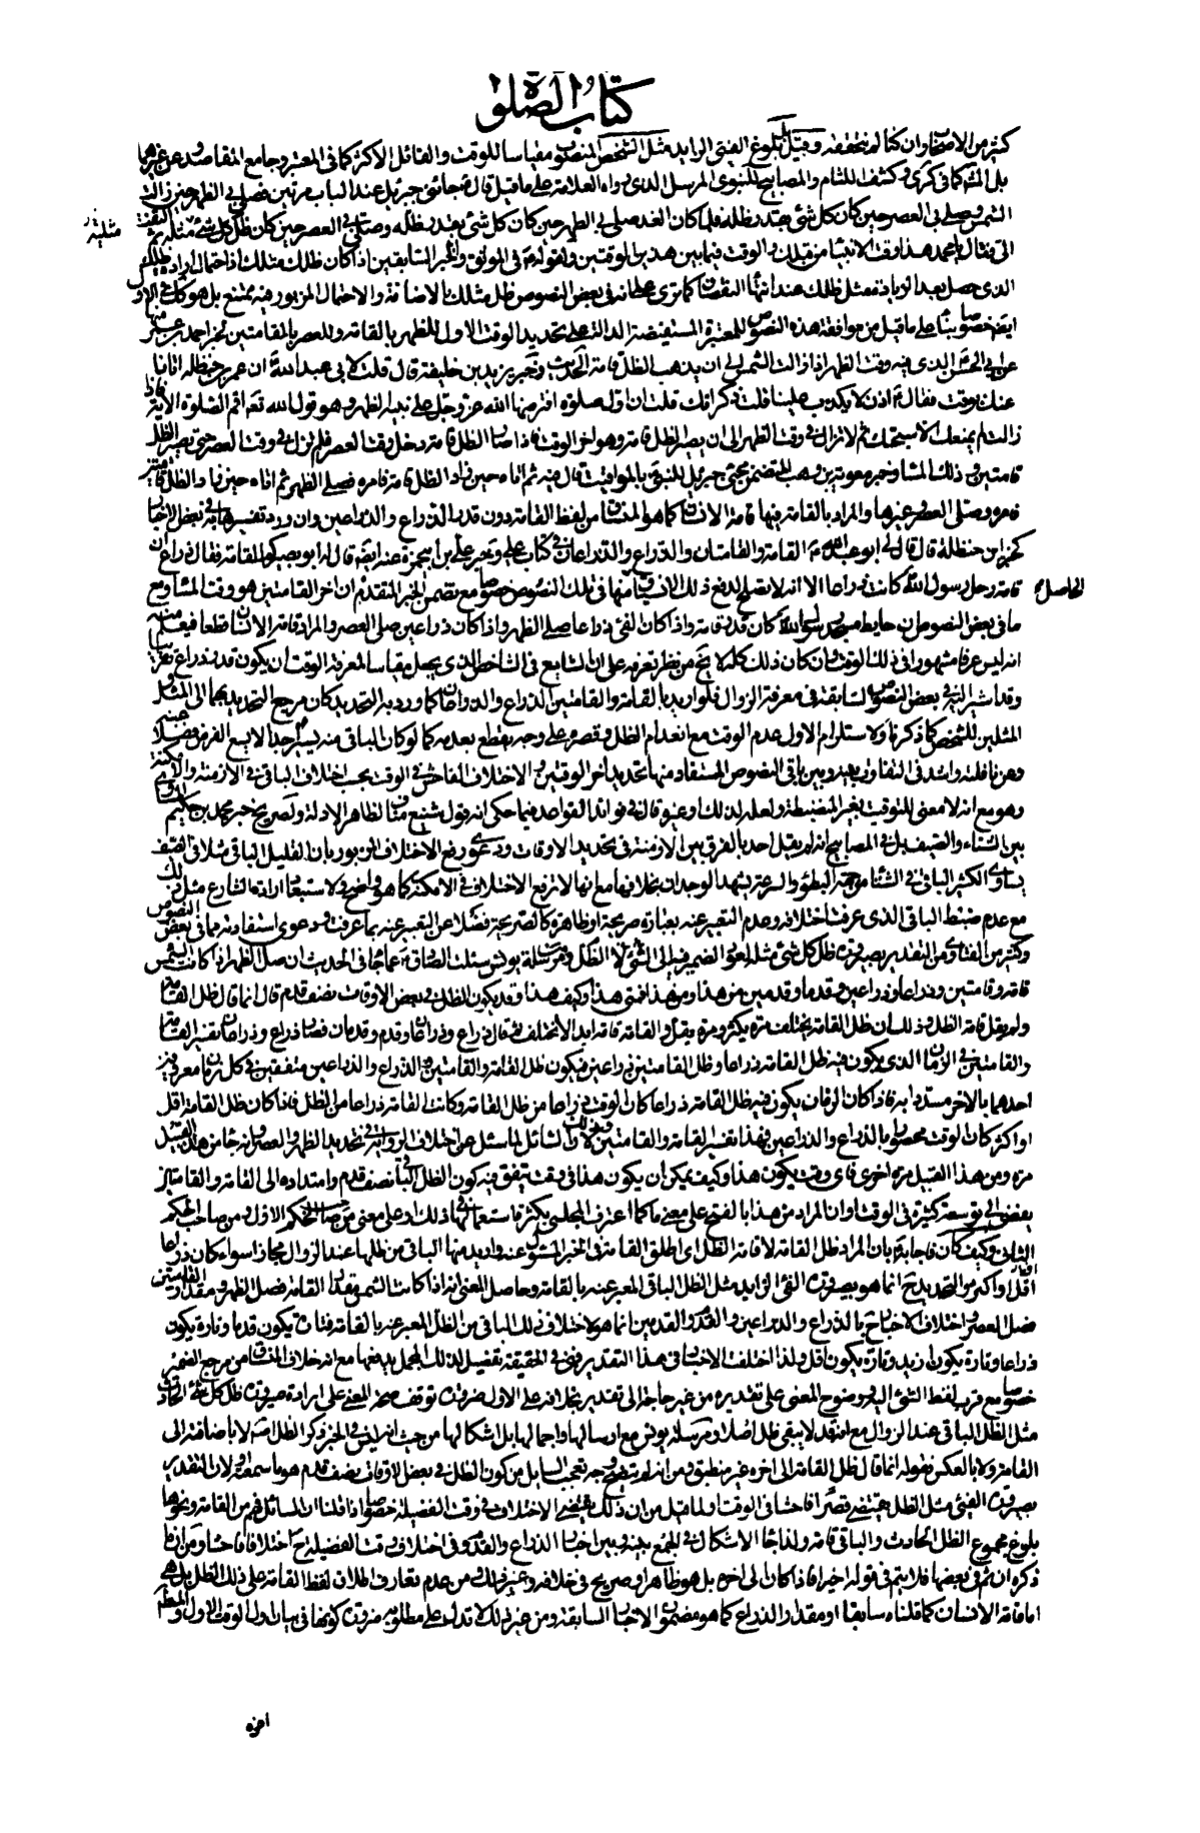 كتاب الصلوة
كثير من الاصحاب وان كنا لم نتحققه وقيل ببلوغ الفيئ الزايد مثل الشخص المنصوب مقياسا للوقت والقائل الاكثر كما في المعتبر وجامع المقاصد وعن غيرهما
بل المشهور كما في كرى وكشف اللثام والمصابيح للنبوي المرسل الذي رواه العلامة على ما قيل قال جائني جبرئيل عند الباب مرتين فصلى بي الظهر حين زالت
الشمس وصلى بي العصر حين كان كل شئ بقدر ظله فلما كان الغد صلى بي الظهر حين كان كل شئ بقدر ظله وصلى بي العصر حين كان ظل كل شئ مثليه ثم التفت
مثليه
الى فقال يا محمد هذا وقت الانبياء من قبلك والوقت فيما بين هذين الوقتين ولقوله في الموثق والخبر السابقين اذا كان ظلك مثلك اذ احتمال ارادة ظلك
الذي حصل بعد الزيادة مثل ظلك عند انتهاء النقصان كما ترى على انه في بعض النصوص ظل مثلك بالاضافة والاحتمال المزبور فيه ممتنع بل هو كل في الاول
ايضا خصوصا بناء على ما قيل من موافقة هذه النصوص للمعتبرة المستفيضة الدالة على تحديد الوقت الاول للظهر بالقامة وللعصر بالقامتين كخبر احمد بن عمر
عن ابي الحسن الذي فيه وقت الظهر اذا زالت الشمس الى ان يذهب الظل قامة الحديث وخبر يزيد بن خليفة قال قلت لابي عبد الله ان عمر بن حنظلة اتانا
عنك بوقت فقال اذن لا يكذب علينا قلت ذكر انك قلت ان اول صلوة افترضها الله عز وجل على نبيه الظهر وهو قول الله تع اقم الصلوة الاية فاذا
زالت لم يمنعك الا سبحتك ثم لا تزال في وقت الظهر الى ان يصير الظل قامة وهو اخر الوقت فاذا صار الظل قامة دخل وقت العصر فلم تزل في وقت العصر حتى يصير الظل
قامتين وذلك المساء وخبر معوية بن وهب المتضمن مجئ جبرئيل للنبي بالمواقيت قال فيه ثم اتاه حين زاد الظل قامة فامره فصلى الظهر ثم اتاه حين زاد الظل قامتين
فامره فصلى العصر وغيرها والمراد بالقامة فيها قامة الانسان كما هو المنساق من لفظ القامة دون قدر الذراع والذراعين وان ورد تفسيرها به في بعض الاخبار
كخبر ابن حنظلة قال قال لي ابو عبد الله القامة والقامتان والذراع والذراعان في كتاب علي وخبر علي بن ابي حمزة عنه ايضا قال له ابو بصير كم القامة فقال ذراع ان
قامة رحل رسول الله كانت ذراعا الا انه لا يصلح لدفع ذلك الانسياق منها في تلك النصوص خصوصا مع تضمن الخبر المتقدم ان اخر القامتين هو وقت المساء ومع
الحاصل
ما في بعض النصوص ان حايط مسجد رسول الله كان قدر قامة واذا كان الفئ ذراعا صلى الظهر واذا كان ذراعين صلى العصر والمراد قامة الانسان قطعا فيعلم منه
انه ليس عرفا مشهورا في ذلك الوقت وان كان ذلك كله لا يخ من نظر تعرفه على ان الشايع في الشاخص الذي يجعل مقياسا لمعرفة الوقت ان يكون قدر ذراع تقريبا
وقد اشير اليه في بعض النصوص السابقة في معرفة الزوال فلو اريد بالقامة والقامتين الذراع والذراعان كما ورد به التحديد كان مرجع التحديد بهما الى المثل و
المثلين للشخص كما ذكرنا ولاستلزام الاول عدم الوقت مع انعدام الظل وقصره على وجه يقطع بعدمه كما لو كان الباقي منه يسيرا جدا لا يسع الفرض فضلا
وعن نافلته وانه في التفاوت بعيد وبين باقي النصوص المستفاد منها تحديد اخر الوقتين والاختلاف الفاحش في الوقت بحسب اختلاف الباقي في الازمنة والامكنة
وهو مع انه لا معنى للتوقيت بغير المنضبط ولعله لذلك وغيره قال في فوائد القواعد فيما حكي انه قول شنيع مناف لظاهر الادلة ولصريح خبر محمد بن حكيم
بين الشتاء والصيف بل في المصابيح انه لم يقل احد بالفرق بين الازمنة في تحديد الاوقات ودعوى رفع الاختلاف المزبور بان القليل الباقي مثلا في الصيف
يساوي الكثير الباقي في الشتاء من جهة البطؤ والسرعة يشهد الوجدان بخلافها مع انها لا ترفع الاختلاف في الامكنة كما هو واضح ولاستبعاد ارادة الشارع مثل ذلك
مع عدم ضبط الباقي الذي عرفت اختلافه وعدم التعبير عنه بعبارة صريحة او ظاهرة كالصريحة فضلا عن التعبير عنه بما عرفت ودعوى استفادته مما في بعض النصوص
وكثير من الفتاوى من التقدير بصيرورة ظل كل شئ مثله لعود الضمير فيه الى الشئ لا الظل ومرسلة يونس سئلت الصادق عما جاء في الحديث ان صل الظهر اذا كانت الشمس
قامة وقامتين وذراعا وذراعين وقدما وقدمين من هذا ومن هذا فمتى هذا وكيف هذا وقد يكون الظل في بعض الاوقات نصف قدم قال انما قال ظل القامة
ولم يقل قامة الظل وذلك ان ظل القامة يختلف مرة يكثر ومرة يقل والقامة قامة ابدا لا تختلف ثم قال ذراع وذراعان وقدم وقدمان فصار ذراع وذراعان تفسير القامة
والقامتين في الزمان الذي يكون فيه ظل القامة ذراعا وظل القامتين ذراعين فيكون ظل القامة والقامتين والذراع والذراعين متفقين في كل زمان معروفين
احدهما بالاخر مسددا به فاذا كان الزمان يكون فيه ظل القامة ذراعا كان الوقت ذراعا من ظل القامة وكانت القامة ذراعا من الظل فاذا كان ظل القامة اقل
او اكثر كان الوقت محصورا بالذراع والذراعين فهذا تفسير القامة والقامتين وذلك لان السائل لما سئل عن اختلاف الرواية في تحديد الظهر والعصر انه جاء من هذا القبيل
مرة ومن هذا القبيل مرة اخرى فاي وقت يكون هذا وكيف يمكن ان يكون هذا في وقت يتفق فيه كون الظل الباقي نصف قدم وامتداده الى القامة والقامتان
يفضي الى توسعة كثيرة في الوقت او ان المراد من هذا بالفتح على معنى ما كما اعترف المجلسي بكثرة استعمالها في ذلك او على معنى من صاحب الحكم الاول ومن صاحب الحكم
الثاني وكيف كان فاجابه بان المراد ظل القامة لا قامة الظل اي اطلق القامة في الخبر المسئول عنه واريد منها الباقي من ظلها عند الزوال مجازا سواء كان ذراعا
اقل او اكثر والتحديد ح انما هو بصيرورة الفئ الزايد مثل الظل الباقي المعبر عنه بالقامة وحاصل المعنى انه اذا كانت الشمس بقدر القامة فصل الظهر ومقدار القامتين
فصل العصر واختلاف الاخبار ح بالذراع والذراعين والقدم والقدمين انما هو لاختلاف ذلك الباقي من الظل المعبر عنه بالقامة فتارة يكون قدما وتارة يكون
ذراعا وتارة يكون ازيد وتارة يكون اقل ولذا اختلفت الاخبار في هذا التقدير فهي في الحقيقة تفصيل لذلك المجمل يدفعها مع انه خلاف المنساق من مرجع الضمير
خصوصا مع قرب لفظ الشئ اليه ووضوح المعنى على تقديره من غير حاجة الى تقدير بخلافه على الاول ضرورة توقف صحة المعنى على ارادة صيرورة ظل كل شئ الحادث
مثل الظل الباقي عند الزوال مع انه قد لا يبقى ظل اصلا ومرسلة يونس مع ارسالها واجمالها بل اشكالها من حيث انه ليس في الخبر ذكر الظل امته لا باضافته الى
القامة ولا بالعكس فقوله انما قال ظل القامة الى اخره غير منطبق ومن انه لم يتضح وجه تعجب السايل من كون الظل في بعض الاوقات نصف قدم هو ما سمعته ولان التقدير
بصيرورة الفيئ مثل الظل يقتضي قصرا فاحشا في الوقت اولما قيل من ان ذلك يقتضي الاختلاف في وقت الفضيلة خصوصا اذا قلنا ان السائل فهم من القامة ونحوها
بلوغ مجموع الظل الحادث والباقي قامة ولذا جاء الاشكال في الجمع بينه وبين اخبار الذراع والقدم وفي اختلاف وقت الفضيلة ح اختلافا فاحشا ومن ان ما
ذكره ان تم في بعضها فلا يتم في قوله اخيرا فاذا كان الى اخره بل هو ظاهر او صريح في خلافه وغير ذلك ومن عدم تعارف اطلاق لفظ القامة على ذلك الظل بل هي
اما قامة الانسان كما قلناه سابقا او مقدار الذراع كما هو مضمون الاخبار السابقة ومن غير ذلك لا تدل على مطلوبه ضرورة كونها في بيان اول الوقت الاول والمعظم
اخره